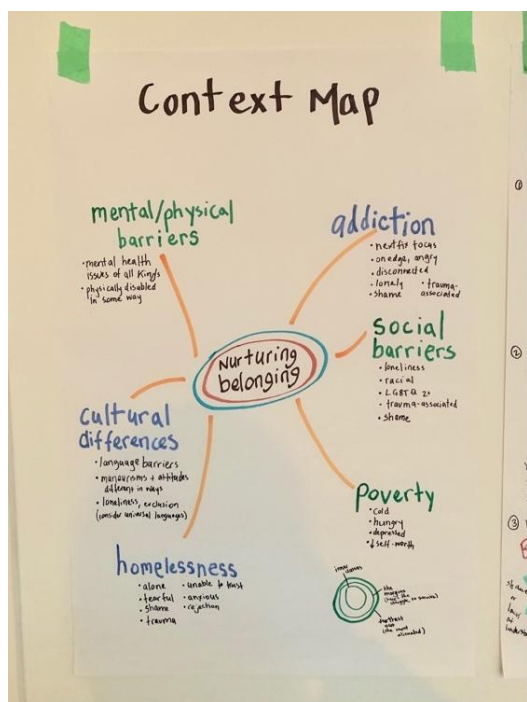 Context Map
mental/physical
barriers
• mental health
issues of all kinds
• physically disabled
in some way
addiction
• next fix focus
• on edge, angry
• disconnected
• lonely • trauma-
• shame associated
social
barriers
• loneliness
• racial
• LGBTQ 2+
• trauma-associated
• shame
nurturing
belonging
cultural
differences
• language barriers
• mannerisms + attitudes
different in ways
• loneliness, exclusion
(consider universal languages)
poverty
• cold
• hungry
• depressed
• ↓ self-worth
homelessness
• alone • unable to trust
• fearful • anxious
• shame • rejection
• trauma
the
margins
furthest
out
(the most
alienated)
1
2
3